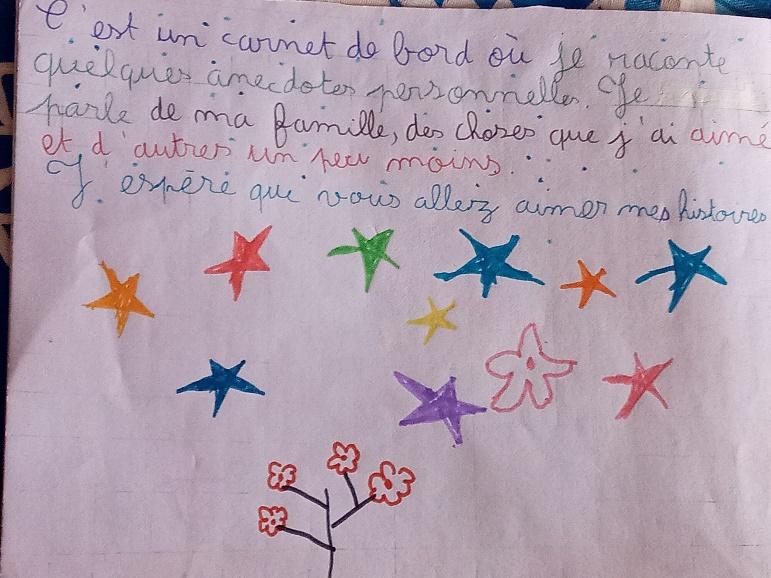 C'est un carnet de bord où je raconte
quelques anecdotes personnelles. Je
parle de ma famille, des choses que j'ai aimé
et d'autres un peu moins...
J'espère que vous allez aimer mes histoires